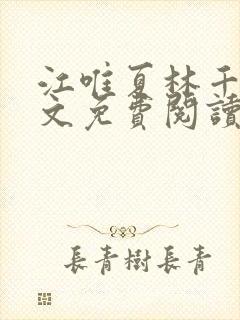 江唯夏林千
文免費閱讀
長青樹長青